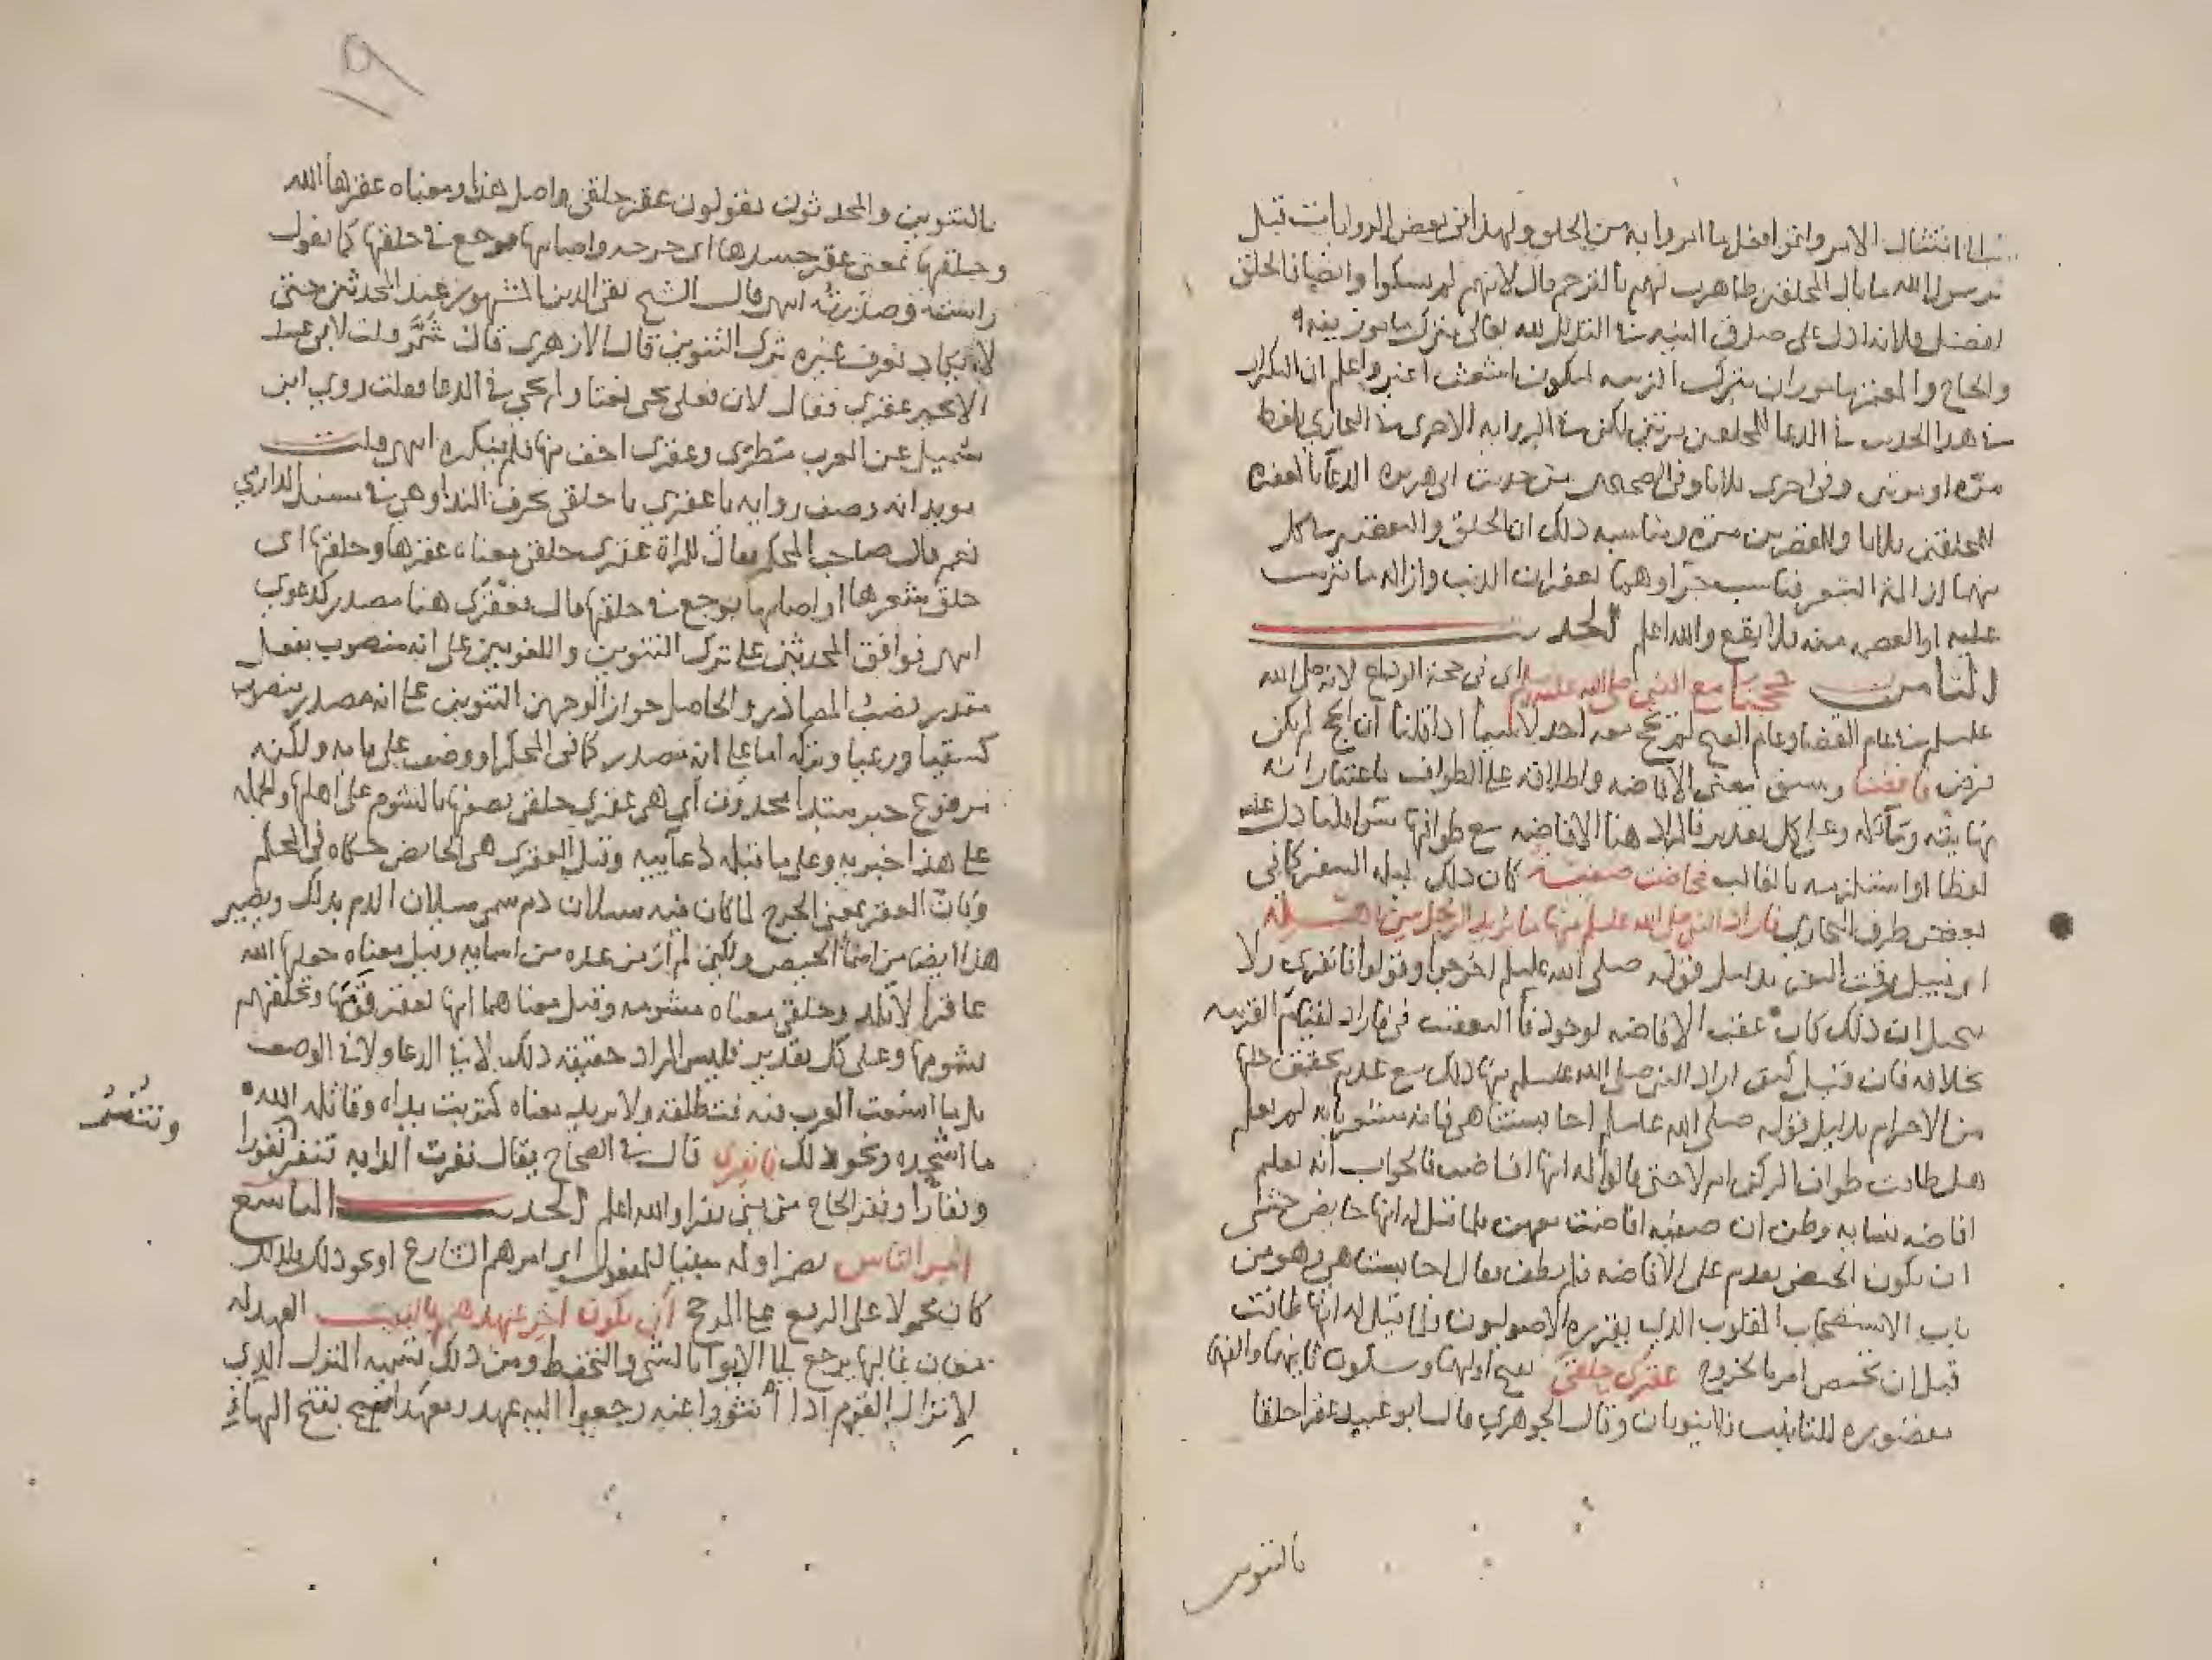 الى امتثال الامر وانهم افضل ما امروا به من الحلق ولهذا في بعض الروايات قيل
يرسول الله ما بال المحلقين ظاهرت لهم بالترحم قال لانهم لم يشكوا وايضا فالحلق
افضل ولانه ادل على صدق النية في التذلل لله تعالى بترك ما يتزين به
والحاج والمعتمر مامور ان بترك الزينه ليكون اشعث اغبر واعلم ان التكرار
في هذا الحديث في الدعا للمحلقين مرتين لكن في الرواية الاخرى في البخاري بلفظ
مرة او مرتين وفي اخرى ثلاثا وفي الصحيحين من حديث ابي هريرة الدعا بالمغفرة
للمحلقين ثلاثا وللمقصرين مرة ومناسبة ذلك ان الحلق والتقصير في كل
منهما ازالة الشعر فناسب جبراوهما لغفران الذنب وازالة ما ترتب
عليه او النقص منه فلا يقع والله اعلم الحديث
الثامن حججنا مع النبي صلى الله عليه وسلم اي في حجة الوداع لانه صلى الله
عليه وسلم في عام القضا وعام الفتح لم يحج معه احد لا سيما اذا قلنا ان الحج لم يكن
فرض فافضنا وسبق معنى الافاضه واطلاقه على الطواف باعتبار انه
نهايته ومآله وعلى كل تقدير فالمراد هنا الافاضه مع طوافها
لفظا او استلزمه بالغالب فحاضت صفية كان ذلك ليله النفر كما في
بعض طرق البخاري فاراد النبي صلى الله عليه وسلم منها ما يريد الرجل من اهله
اي قبيل وقت النفر بدليل قوله صلى الله عليه وسلم اخرجوا وقوله انفري ولا
يحيل ان ذلك كان عقب الافاضه لوجود فا التعقيب في فاراد لقيام القرينه
بخلافه فان قيل كيف اراد النبي صلى الله عليه وسلم منها ذلك مع عدم تحقيق حلها
من الاحرام بدليل قوله صلى الله عليه وسلم احابستنا هي فانه مشعر بانه لم يعلم
هل طافت طواف الركن ام لا حتى قالوا له انها افاضت فالجواب انه يعلم
افاضه نسايه وظن ان صفيه افاضت معهن فلما قيل له انها حايض خشي
ان يكون الحيض يقدم على الافاضه فلم تطف فقال احابستنا هي وهو من
باب الاستصحاب المقلوب الذي يقرره الاصوليون فلما قيل له انها طافت
قبل ان تحيض امر بالخروج عقرى حلقى بفتح اولهما وسكون ثانيهما والفه
مقصوره للتانيث فلا ينونان وقال الجوهري قال ابو عبيد عقرا حلقا
بالتنوين
١٩
بالتنوين والمحدثون يقولون عقرى حلقى واصل هذا ومعناه عقرها الله
وحلقها بمعنى عقر جسدها اي جرحه واصابها بوجع في حلقها كما يقول
راسته وصدرته انتهى قال الشيخ تقي الدين المشهور عند المحدثين حتى
لا يكاد يعرف غيره ترك التنوين قال الازهري قال شمر قلت لابي عبيد
الا تجيز عقرى فقال لان فعلى تجي نعتا ولم تجي في الدعا فقلت روي ابن
شميل عن العرب مطيرى وعقرى اخف منها فلم ينكره انتهى قلت
يويد انه وصف رواية يا عقرى يا حلقى بحرف الندا وهي في مسند الدارمي
نعم قال صاحب المحكم يقال للمراة عقرى حلقى معناه عقرها وحلقها اي
حلق شعرها او اصابها بوجع في حلقها قال فعقرى هنا مصدر كدعوى
انتهى فوافق المحدثين على ترك التنوين واللغويين على انه منصوب بفعل
مقدر نصب المصادر والحاصل جواز الوجهين التنوين على انه مصدر منصوب
كسقيا ورعيا وتركه اما على انه مصدر كما في المحكم او وصف على بابه ولكنه
مرفوع خبر مبتدا محذوف اي هي عقرى حلقى يصفها بالشوم على اهلها والجمله
على هذا خبريه وعلى ما قبله دعائيه وقيل العقرى هي الحايض حكاه في المحكم
وكان العقر بمعنى الجرح لما كان فيه سيلان دم سمي سيلان الدم بذلك ويصير
هذا ايضا من اسما الحيض ولكن لم ار من عده من اسمايه وقيل معناه جعلها الله
عاقرا لا تلد وحلقى معناه مشومه وقيل معناهما انها تعقر قومها وتحلقهم
بشومها وعلى كل تقدير فليس المراد حقيقة ذلك لا في الدعا ولا في الوصف
بل ما اتسعت العرب فيه فتطلقه ولا يريد معناه كتربت يداه وقاتله الله
ما اشجعه ونحو ذلك فانفري قال في الصحاح يقال نفرت الدابه تنفر نفورا
ونفارا ونفر الحاج من منى نفرا والله اعلم الحديث التاسع
امر الناس بضم اوله مبنيا للمفعول اي امرهم الشارع او نحو ذلك ولذلك
كان محمولا على الرفع على المرجح ان يكون اخر عهدهم بالبيت العهد له
معان غالبها يرجع الى الاتيان بالشي والتحفظ ومن ذلك تسمية المنزل الذي
لا يزال القوم اذا انتووا عنه رجعوا اليه عهد ومعهدا بفتح الهاء
وتنفر